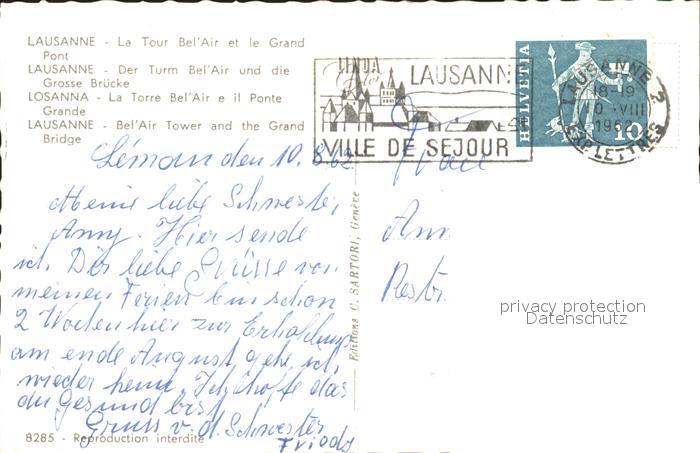 LAUSANNE - La Tour Bel'Air et le Grand
Pont
LAUSANNE - Der Turm Bel'Air und die
Grosse Brücke
LOSANNA - La Torre Bel'Air e il Ponte
Grande
LAUSANNE - Bel'Air Tower and the Grand
Bridge
LAUSANNE
VILLE DE SEJOUR
HELVETIA
10
LAUSANNE 2
18-19
VIII
EXP. LETTRES
den 10. 8. 62
Meine liebe Schwester,
Anny. Hier sende
ich Dir liebe Grüsse von
meinen Ferien bin schon
2 Wochen hier zur Erholung
am ende August gehe ich
wieder heim. Ich hoffe das
du Gesund bist
Gruss v. d. Schwester
Frieda
Editions C. SARTORI, Genève
Ann
Restr.
privacy protection
Datenschutz
8285 - Reproduction interdite